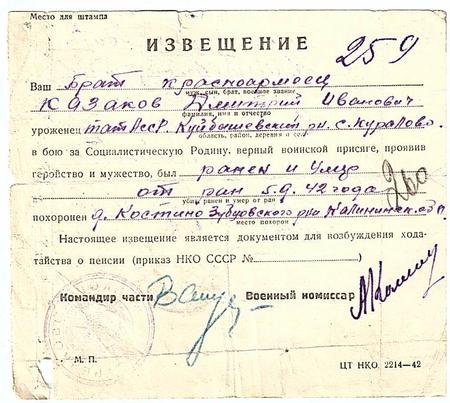 Место для штампа
ИЗВЕЩЕНИЕ 259
Ваш брат красноармеец
муж, сын, брат, военное звание
Казаков Дмитрий Иванович
фамилия, имя и отчество
уроженец ТатАССР, Куйбышевский рн. с.
область, район, деревня и село
в бою за Социалистическую Родину, верный воинской присяге, проявив
геройство и мужество, был ранен и умер
от ран 5.9.42 года
убит, ранен и умер от ран
похоронен д. Костино Зубцовского рна Калининск.
место похорон
Настоящее извещение является документом для возбуждения хода-
тайства о пенсии (приказ НКО СССР №)
Командир части Военный комиссар
М. П. ЦТ НКО. 2214—42